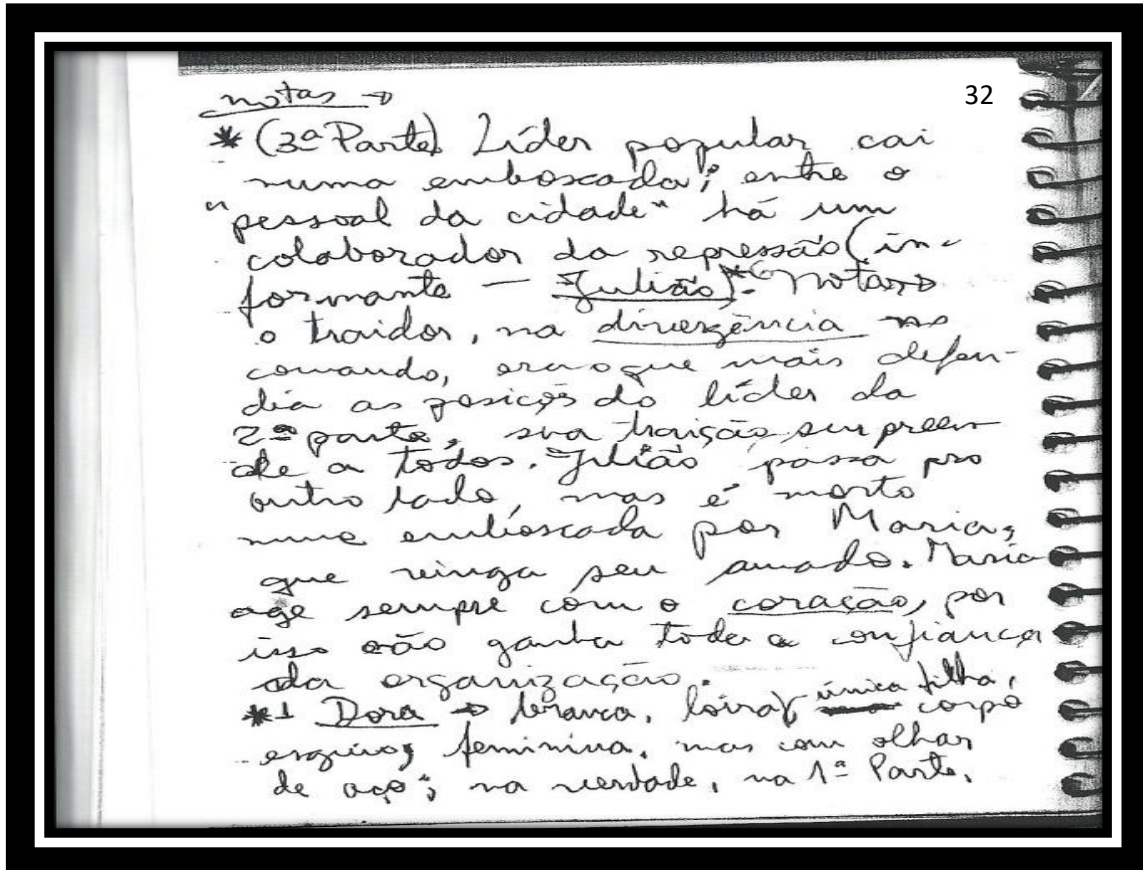 notas → 32
* (3ª Parte) Líder popular cai
numa emboscada; entre o
"pessoal da cidade" há um
colaborador da repressão (in-
formante — Julião). Notas →
o traidor, na divergência no
comando, era o que mais defen-
dia as posições do líder da
2ª parte, sua traição surpreen-
de a todos. Julião passa pro
outro lado, mas é morto
numa emboscada por Maria,
que vinga seu amado. Maria
age sempre com o coração, por
isso não ganha toda a confiança
da organização.
*1 Dora → branca, loira, única filha, corpo
esguio, feminina, mas com olhar
de aço; na verdade, na 1ª Parte,